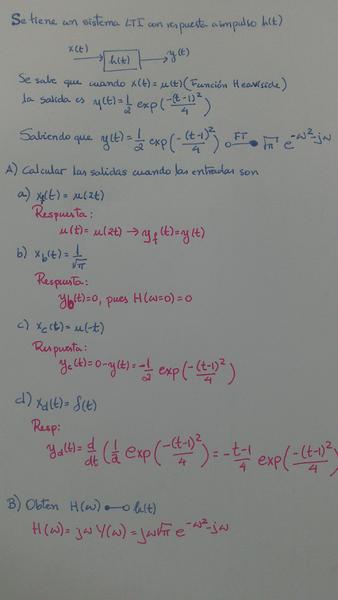 Se tiene un sistema LTI con respuesta a impulso h(t)
x(t) → h(t) → y(t)
Se sabe que cuando x(t)=μ(t) (Función Heaviside)
la salida es y(t)=1/2 exp(-(t-1)²/4)
Sabiendo que y(t)=1/2 exp(-(t-1)²/4) ○—FT—● √π e^{-ω²-jω}
A) Calcular las salidas cuando las entradas son
a) x_f(t)=μ(2t)
Respuesta:
μ(t)=μ(2t) → y_f(t)=y(t)
b) x_b(t)=1/√π
Respuesta:
y_b(t)=0, pues H(ω=0)=0
c) x_c(t)=μ(-t)
Respuesta:
y_c(t)=0-y(t)=-1/2 exp(-(t-1)²/4)
d) x_d(t)=δ(t)
Resp:
y_d(t)=d/dt (1/2 exp(-(t-1)²/4)=-t-1/4 exp(-(t-1)²/4)
B) Obten H(ω) ●—○ h(t)
H(ω)=jω Y(ω)=jω√π e^{-ω²-jω}